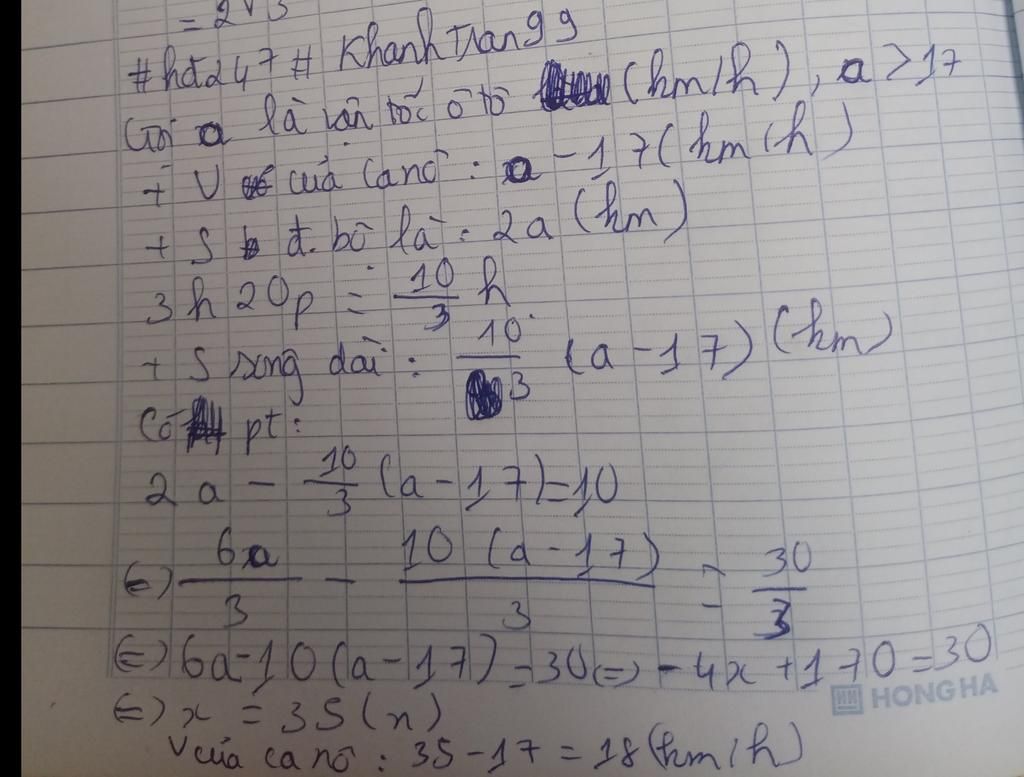 = 2√3
#hđ247# Khanh Trang 99
Gọi a là vận tốc ô tô (km/h), a > 17
+ V của canô : a - 17 (km/h)
+ S đ. bộ là : 2a (km)
3h 20p = 10/3 h
+ S sông dài : 10/3 (a - 17) (km)
Có pt :
2a - 10/3 (a - 17) = 10
(=) 6a/3 - 10 (a - 17)/3 = 30/3
(=) 6a - 10 (a - 17) = 30 (=) - 4x + 170 = 30
HONG HA
(=) x = 35 (n)
V của ca nô : 35 - 17 = 18 (km/h)